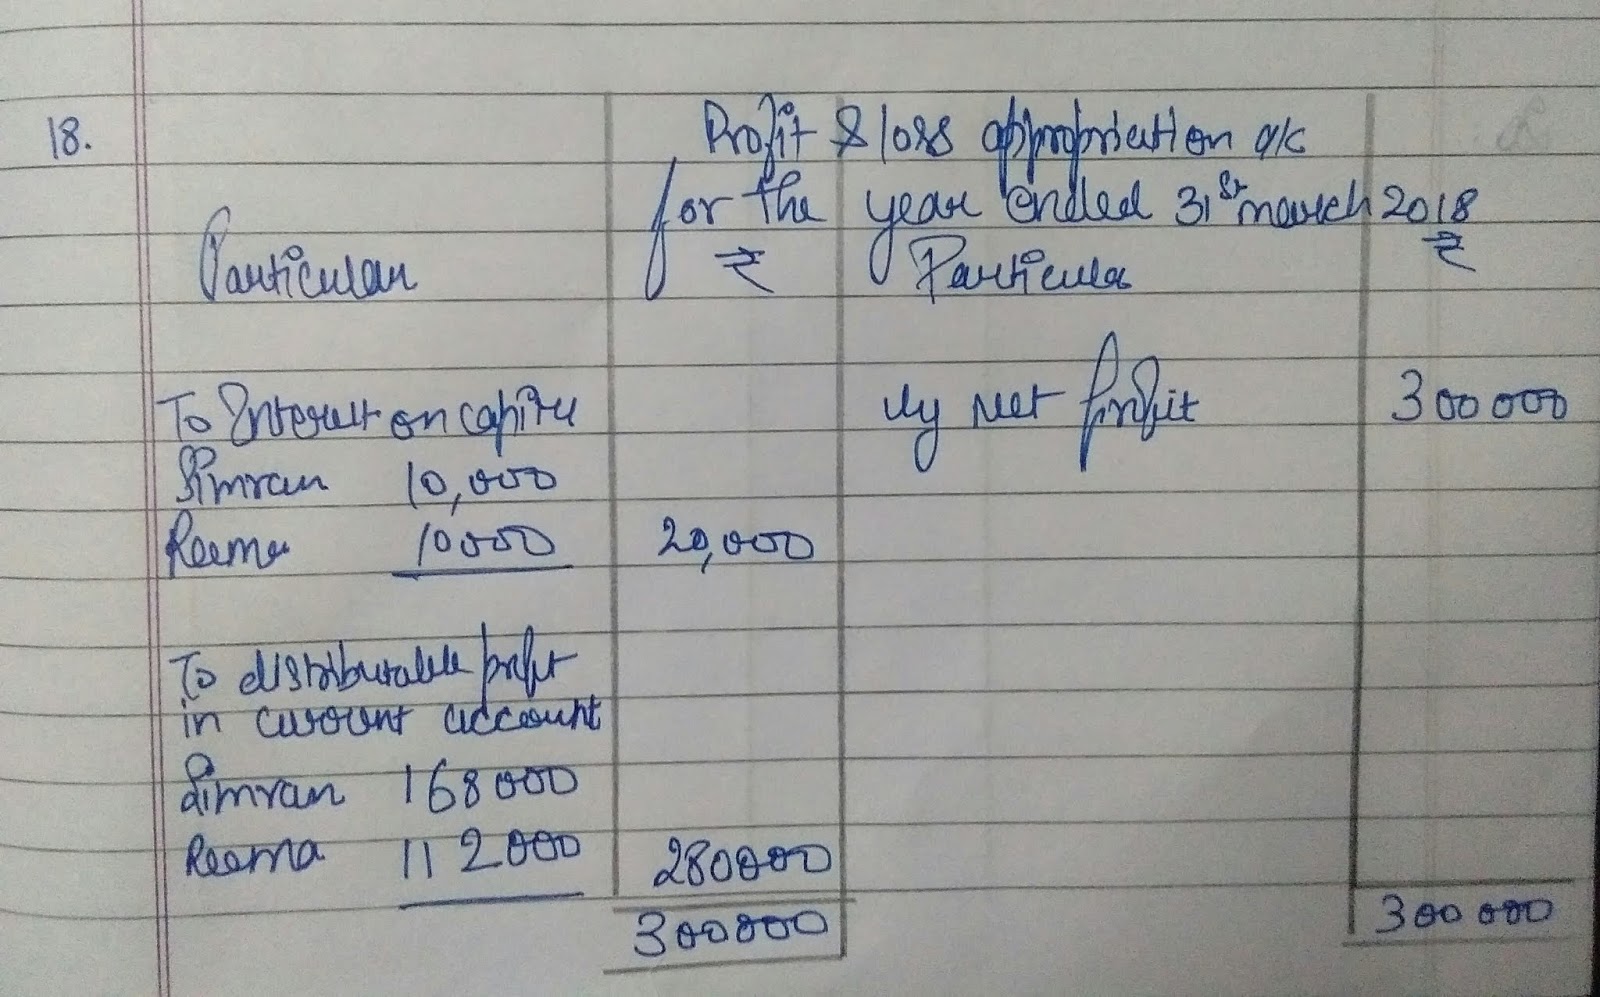 18.
Profit & loss appropriation a/c
for the year ended 31st march 2018
Particular ₹ Particular ₹
To Interest on capital By Net profit 300000
Simran 10,000
Reema 10000 20,000
To distributable profit
in current account
Simran 168000
Reema 112000 280000
300000 300000